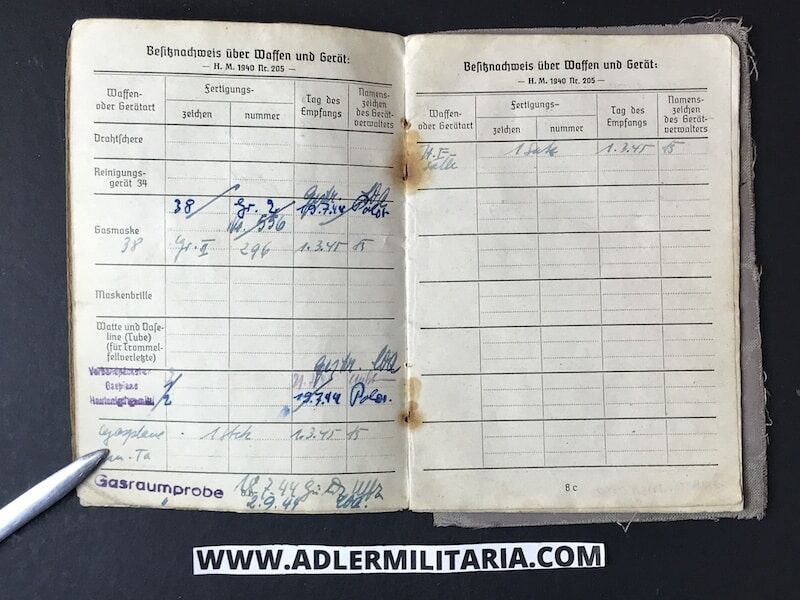 Besitznachweis über Waffen und Gerät:
— H. M. 1940 Nr. 205 —
Waffen-
oder Gerätart
Fertigungs-
zeichen
nummer
Tag des
Empfangs
Namens-
zeichen
des Gerät-
verwalters
Drahtschere
Reinigungs-
gerät 34
38 Gr. 2 19.7.44
Nr. 556
Gasmaske
38 Gr. II 296 1.3.45
Maskenbrille
Watte und Vase-
line (Tube)
(für Trommel-
fellverletzte)
Gasplane
19.7.44
Gasplane 1 Stck 1.3.45
Gasraumprobe 18.7.44
2.9.44
Besitznachweis über Waffen und Gerät:
— H. M. 1940 Nr. 205 —
Waffen-
oder Gerätart
Fertigungs-
zeichen
nummer
Tag des
Empfangs
Namens-
zeichen
des Gerät-
verwalters
1 Satz 1.3.45
8 c
WWW.ADLERMILITARIA.COM